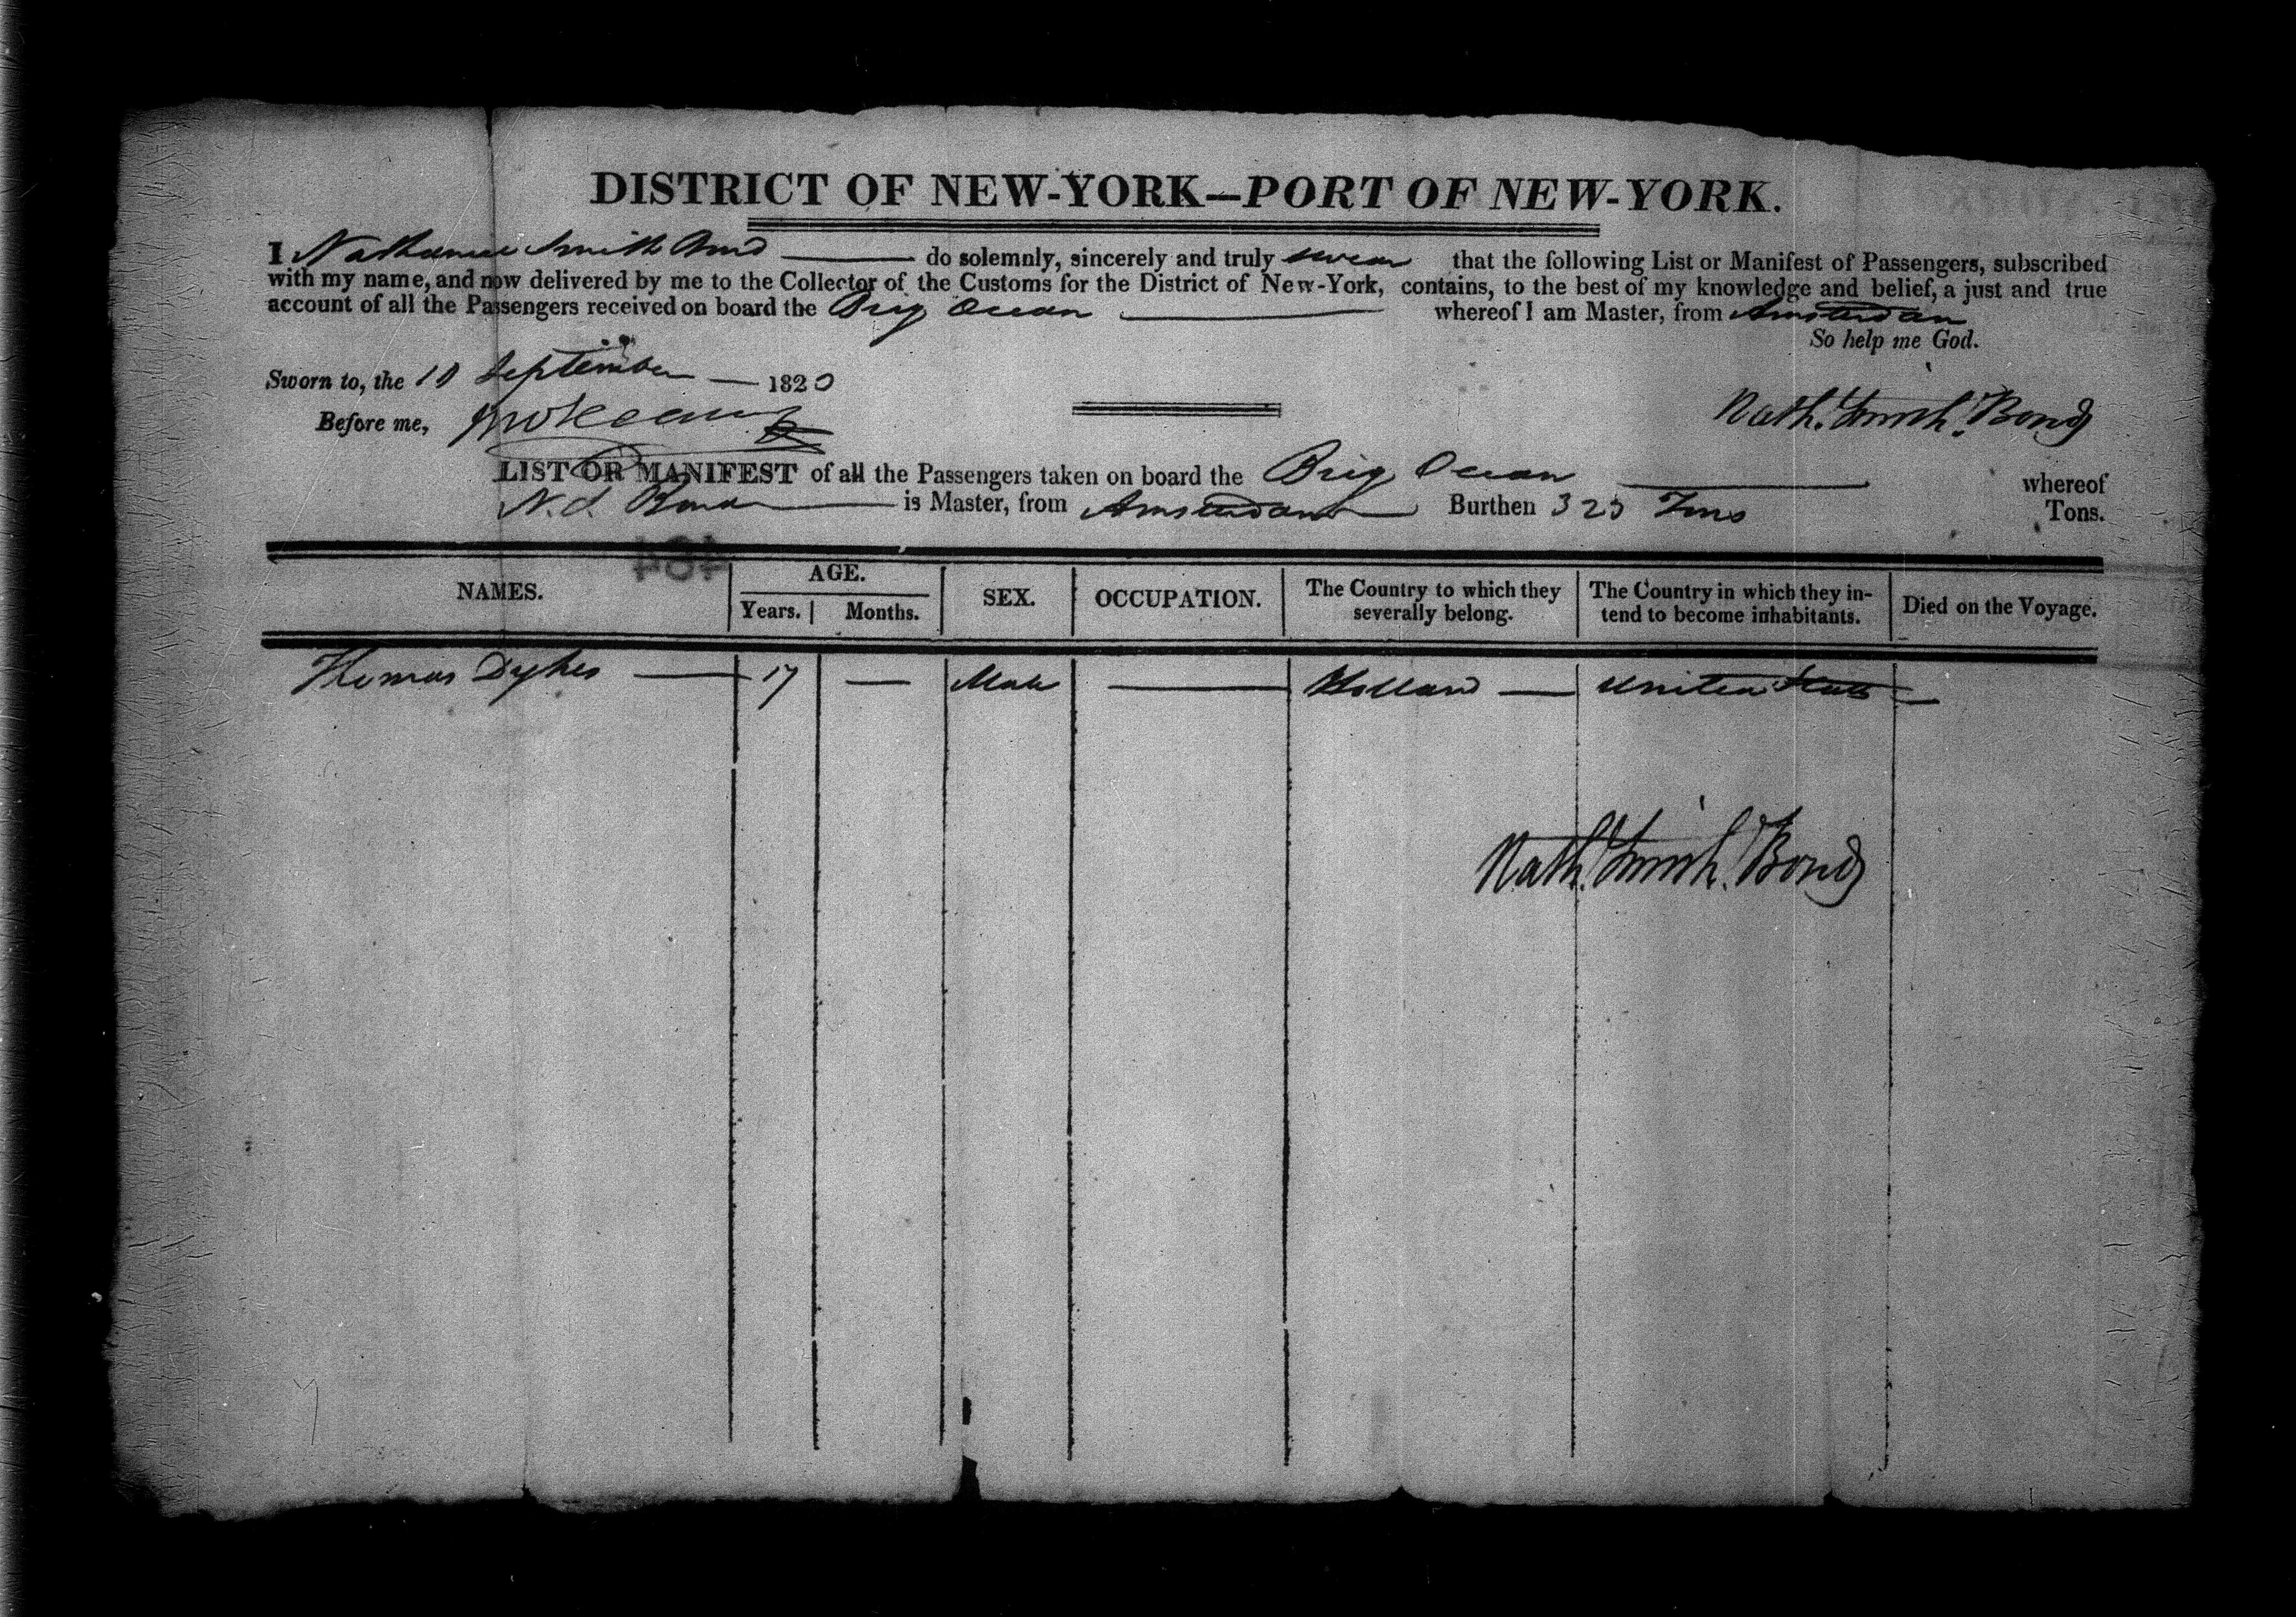 DISTRICT OF NEW-YORK—PORT OF NEW-YORK.
I Nathaniel Smith Bond do solemnly, sincerely and truly swear that the following List or Manifest of Passengers, subscribed
with my name, and now delivered by me to the Collector of the Customs for the District of New-York, contains, to the best of my knowledge and belief, a just and true
account of all the Passengers received on board the Brig Ocean whereof I am Master, from Amsterdam
So help me God.
Sworn to, the 10 September — 1820
Before me,
Nath. Smith. Bond
LIST OR MANIFEST of all the Passengers taken on board the Brig Ocean whereof
N. S. Bond is Master, from Amsterdam Burthen 323 Tons Tons.
484
NAMES. AGE. Years. Months. SEX. OCCUPATION. The Country to which they severally belong. The Country in which they in-tend to become inhabitants. Died on the Voyage.
Thomas Dykes — 17 — Male — Holland — United States —
Nath. Smith. Bond